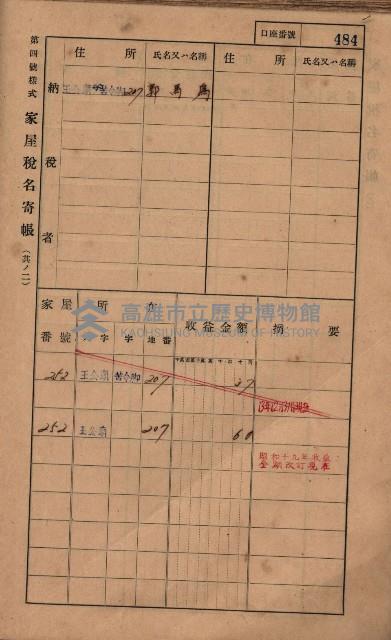 口座番號 484
第四號樣式 家屋稅名寄帳 (其ノ二)
納稅者
住所 氏名又ハ名稱 住所 氏名又ハ名稱
王公廟 苦令脚 207
家屋番號 所在 收益金額 摘要
字 字 地番
252 王公廟 苦令脚 207 27
252 王公廟 207 60
昭和十九年收益
金額改訂現在
高雄市立歷史博物館
KAOHSIUNG MUSEUM OF HISTORY